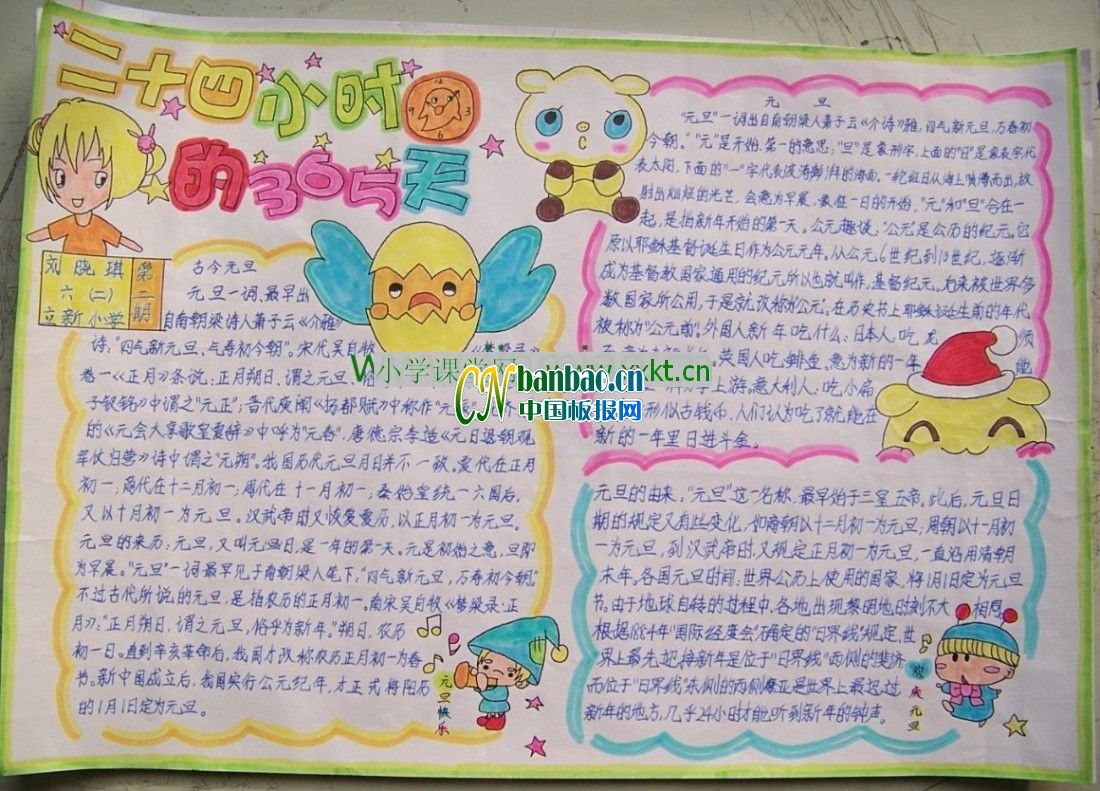 二十四小时
的365天
刘晓琪
六（二）
立新小学
第二期
古今元旦
元旦一词、最早出
自南朝梁诗人萧子云《介雅》
诗："四气新元旦、万寿初今朝"。宋代吴自牧
卷一《正月》条说：正月朔日，谓之元旦，
子钗铭》中谓之"元正"；晋代庾阐《扬都赋》中称作"元辰"；
的《元会大享歌皇夏辞》中呼为"元春"，唐德宗李适《元日退朝观
军仗归营》诗中谓之"元朔"。我国历代元旦月日并不一致。夏代在正月
初一，商代在十二月初一，周代在十一月初一；秦始皇统一六国后，
又以十月初一为元旦。汉武帝时又恢复夏历，以正月初一为元旦。
元旦的来历：元旦，又叫元旦日，是一年的第一天。元是初始之意，旦即
为早晨。"元旦"一词最早见于南朝梁人笔下："四气新元旦，万寿初今朝。"
不过古代所说的元旦，是指农历的正月初一。南宋吴自牧《梦粱录·正
月》："正月朔日，谓之元旦，俗乎为新年。"朔日，农历
初一日。直到辛亥革命后，我国才改称农历正月初一为春
节。新中国成立后，我国实行公元纪年，才正式将阳历
的1月1日定为元旦。
元旦快乐
元 旦
"元旦"一词出自南朝梁人萧子云《介诗》雅，四气新元旦，万寿初
今朝。"元"是开始、第一的意思，"旦"是象形字，上面的"日"是象表字代
表太阳，下面的"一"字代表波涛澎湃的海面。一轮红日从海上喷薄而出，放
射出灿烂的光芒，会意为早晨，象征一日的开始，"元"和"旦"合在一
起，是指新年开始的第一天。公元趣谈，"公元是公历的纪元。它
原以耶稣基督诞生日作为公元元年，从公元6世纪到10世纪，逐渐
成为基督教国家通用的纪元所以也就叫作，基督纪元。后来被世界多
数国家所公用，于是就改称为公元，在历史书上耶稣诞生前的年代
被称为"公元前"。外国人新年吃什么：日本人：吃龙
英国人吃鲱鱼，意为新的一年 能
力争上游。意大利人：吃小扁
形似古钱币，人们认为吃了就能在
新的一年里日进斗金。
元旦的由来，"元旦"这一名称，最早始于三皇五帝，此后，元旦日
期的规定又有些变化，如商朝以十二月初一为元旦，周朝以十一月初
一为元旦，到汉武帝时，又规定正月初一为元旦，一直沿用清朝
末年。各国元旦时间：世界公历上使用的国家，将1月1日定为元旦
节。由于地球自转的过程中，各地出现黎明地时刻不大相同，
根据1884年"国际经度会"确定的"日界线"规定，世
界上最先迎接新年是位于"日界线"西侧的斐济
而位于"日界线"东侧的西侧摩亚是世界上最迟过
新年的地方，几乎24小时才能听到新年的钟声。
欢庆元旦
小学课堂网 www.xxkt.cn
CN banbao.cn
中国板报网